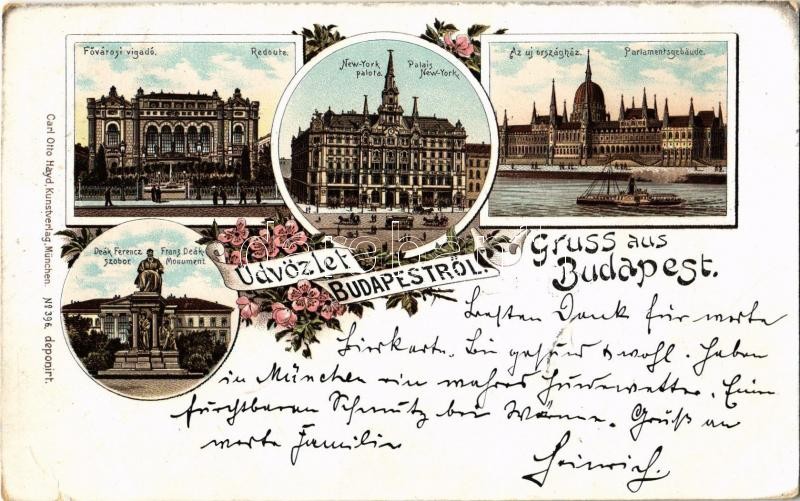 Fővárosi vigadó. Redoute.
New-York Palais
palota. New-York.
Az uj országház. Parlamentsgebäude.
Carl Otto Hayd, Kunstverlag, München. Nº 396. deponirt.
Deák Ferencz Franz Deák-
szobor Monument
Üdvözlet
BUDAPESTRŐL!
Gruss aus
Budapest.
Besten Dank für werte
Bierkarte. Bin gesund & wohl. Haben
in München ein wahres Hundewetter. Einen
furchtbaren Schmutz bei Wärme. Gruß an
werte Familie
Heinrich.